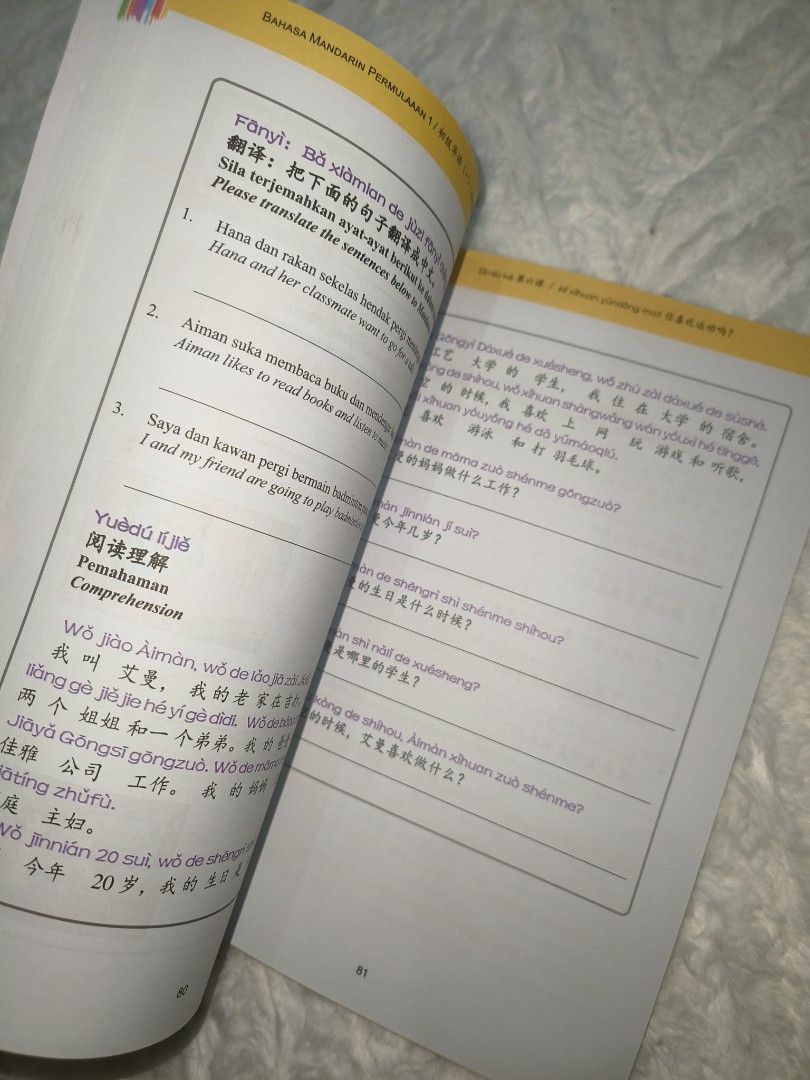 BAHASA MANDARIN PERMULAAAN 1 / 初级华语（一）
Fānyì: Bǎ xiàmian de jùzi fānyì
翻译：把下面的句子翻译成中文。
Sila terjemahkan ayat-ayat berikut ke dalam
Please translate the sentences below to
1. Hana dan rakan sekelas hendak pergi
Hana and her classmate want to go for a
2. Aiman suka membaca buku dan
Aiman likes to read books and listen to
3. Saya dan kawan pergi bermain badminton
I and my friend are going to play
Yuèdú lǐjiě
阅读理解
Pemahaman
Comprehension
Wǒ jiào Àimàn, wǒ de lǎo jiā zài
我 叫 艾曼， 我 的 老 家 在 吉
liǎng gè jiějie hé yí gè dìdi. Wǒ de
两 个 姐姐 和 一个 弟弟。我 的 爸爸
Jiāyǎ Gōngsī gōngzuò. Wǒ de māma
佳雅 公司 工作。 我 的 妈妈
jiātíng zhǔfù.
庭 主妇。
Wǒ jīnnián 20 suì, wǒ de shēngrì
今年 20 岁，我 的 生日 是
80
Dì-liù kè 第六课 / Nǐ xǐhuan yùndòng ma? 你喜欢运动吗？
Gōngyì Dàxué de xuésheng, wǒ zhù zài dàxué de sùshè.
工艺 大学 的 学生， 我 住 在 大学 的 宿舍。
de shíhou, wǒ xǐhuan shàngwǎng wán yóuxì hé tīnggē,
空 的 时候，我 喜欢 上 网 玩 游戏 和 听歌，
xǐhuan yóuyǒng hé dǎ yǔmáoqiú.
喜欢 游泳 和 打 羽毛球。
màn de māma zuò shénme gōngzuò?
曼的妈妈做什么工作？
màn jīnnián jǐ suì?
曼今年几岁？
màn de shēngrì shì shénme shíhou?
曼的生日是什么时候？
màn shì nǎlǐ de xuésheng?
是哪里的学生？
kòng de shíhou, Àimàn xǐhuan zuò shénme?
的时候，艾曼喜欢做什么？
81